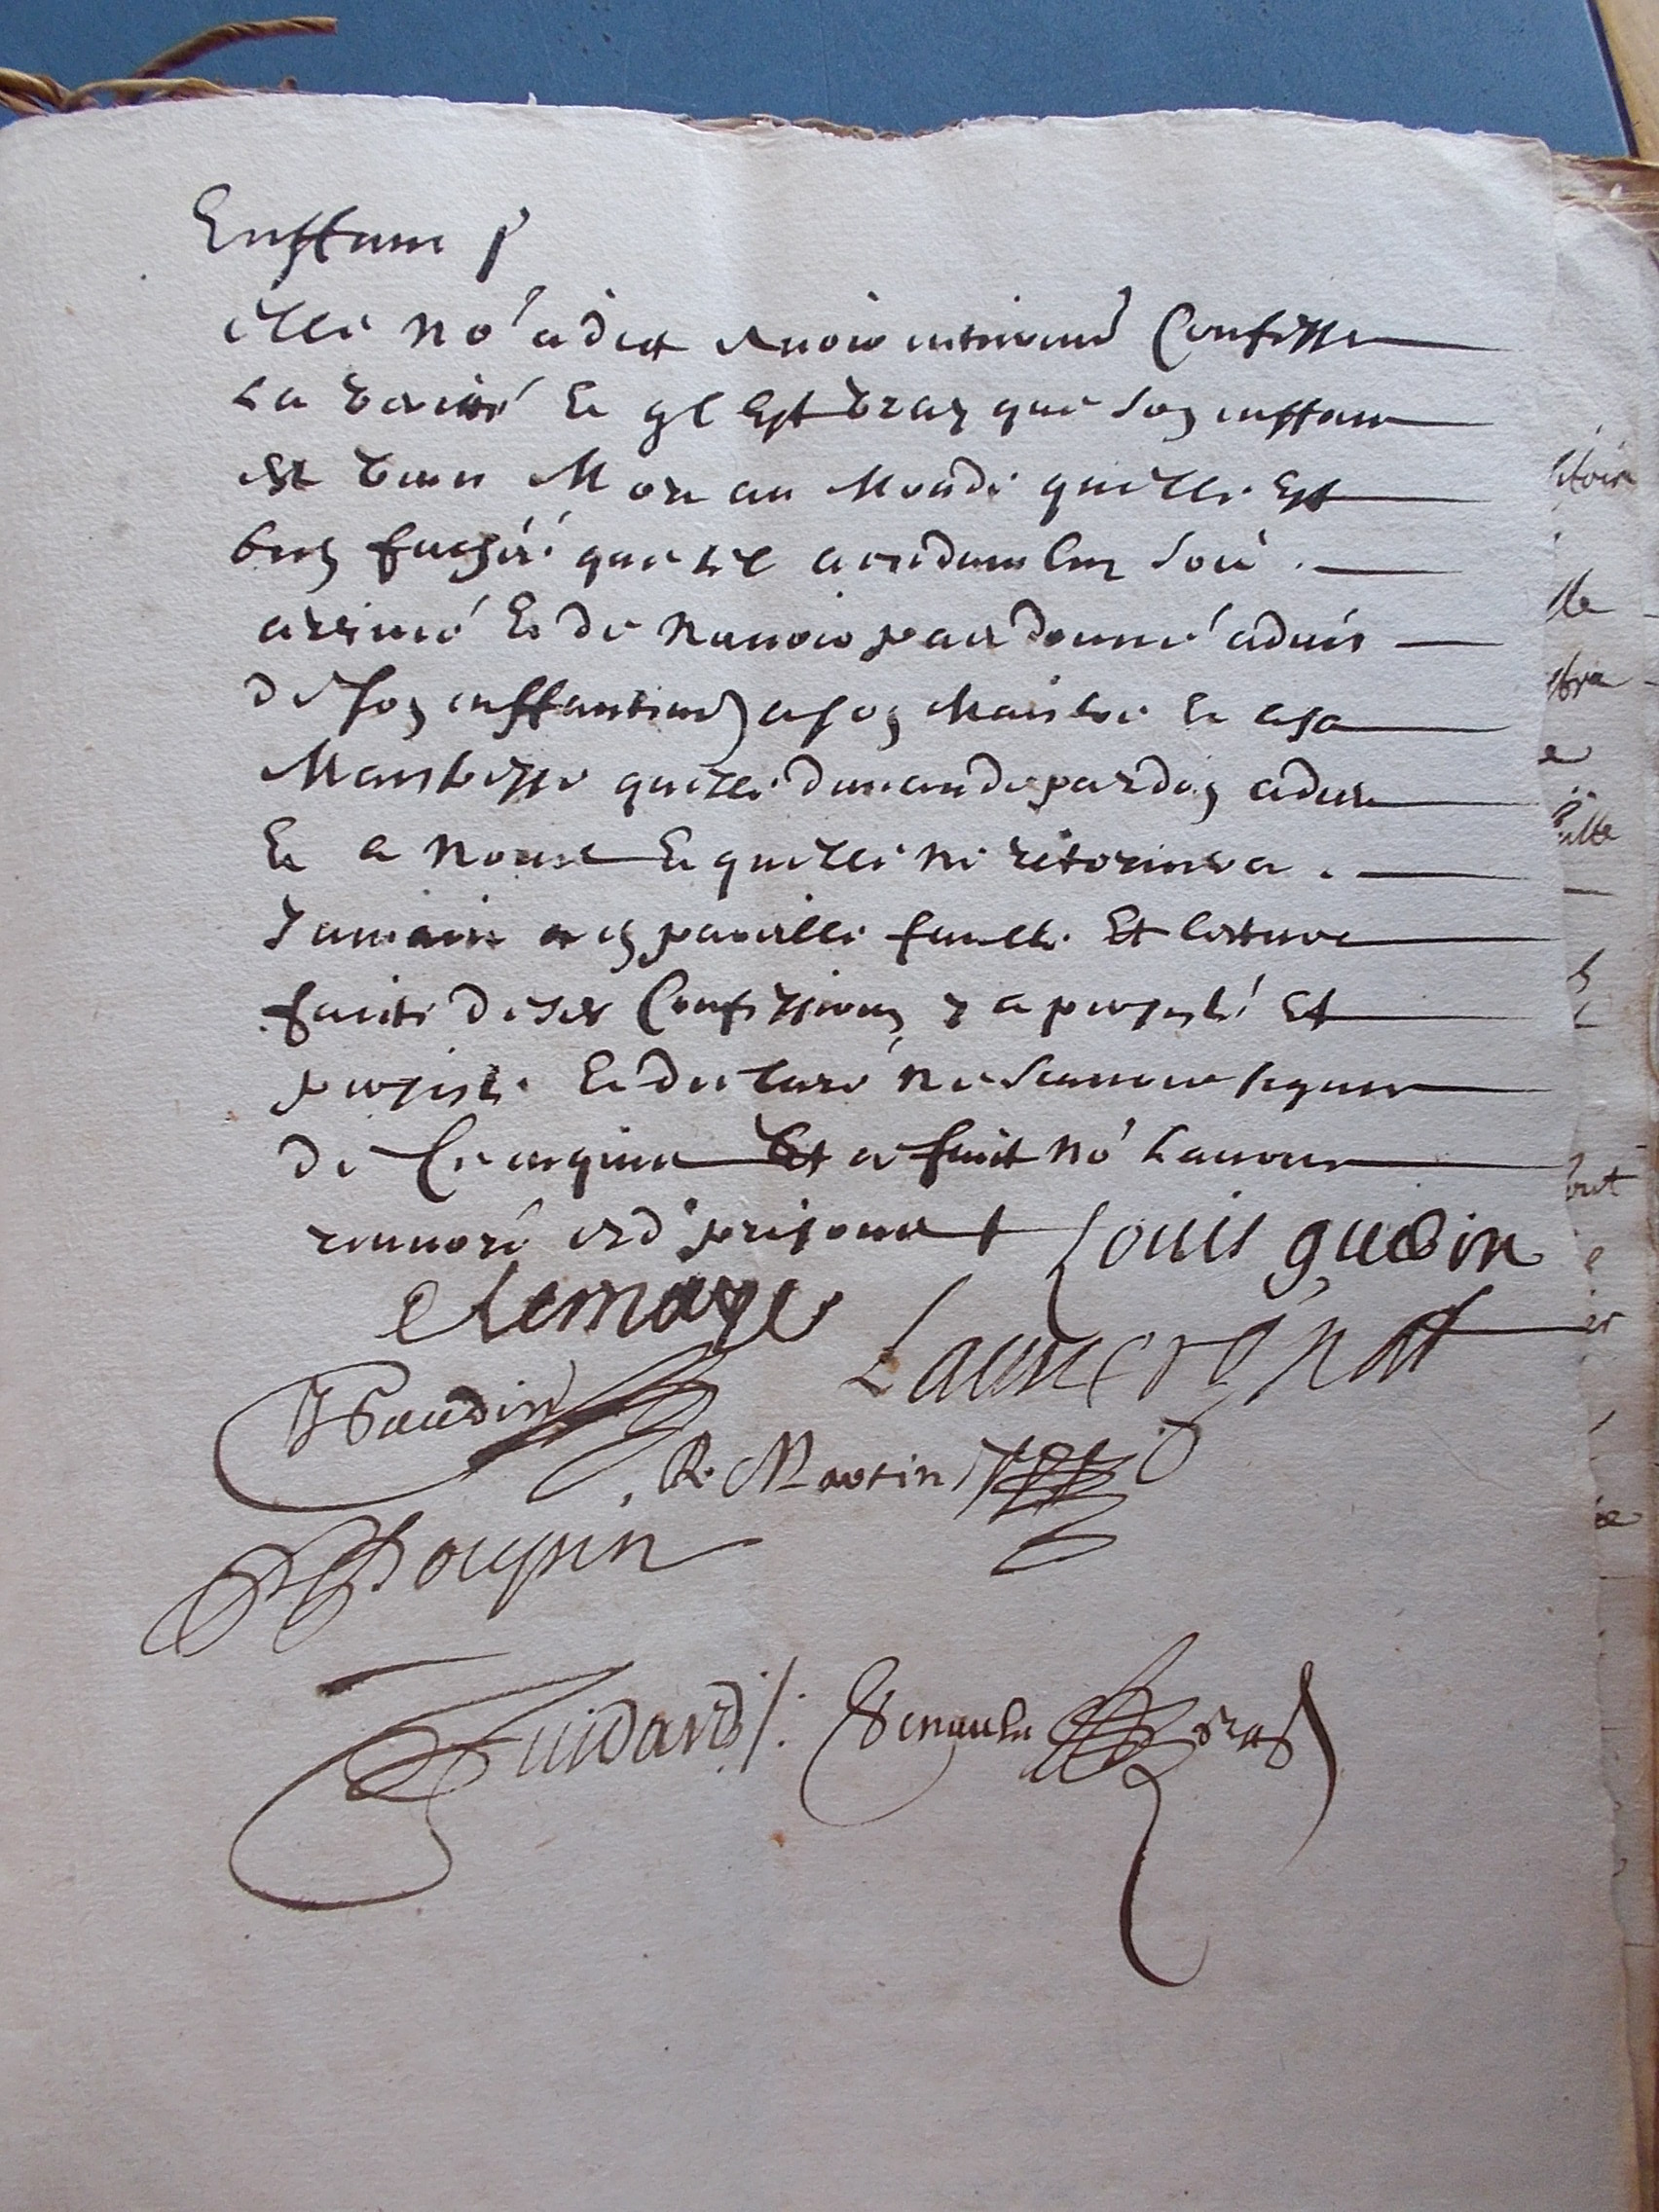 Enffans /
Elle no' a dict avoir entieremt Confessé
La verité Et ql Est vray que son enffan
est venu Mort au Monde quelle Est
bien faschée que cet accidant luy soit
arrivé Et de navoir pas donné advis
de son enffantemt a son Maistre Et a sa
Maistresse quelle demande pardon a dieu
Et a nous Et quelle ne retornera
Jamais a en pareille faulte Et lecture
faicte de ses Confessions y a persisté Et
persiste Et declaré ne scavoir signer
de ce enquise Et a faict no' Lavons
renvoié esd prisons
Louis guerin
Lemaye
Lauvergnat
Baudin
R. Martin
Poupin
Guidard